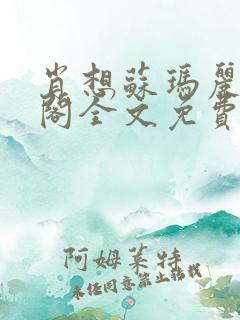 肖想蘇瑪麗
閣全文免費
阿姆萊特
未经同意禁止转载